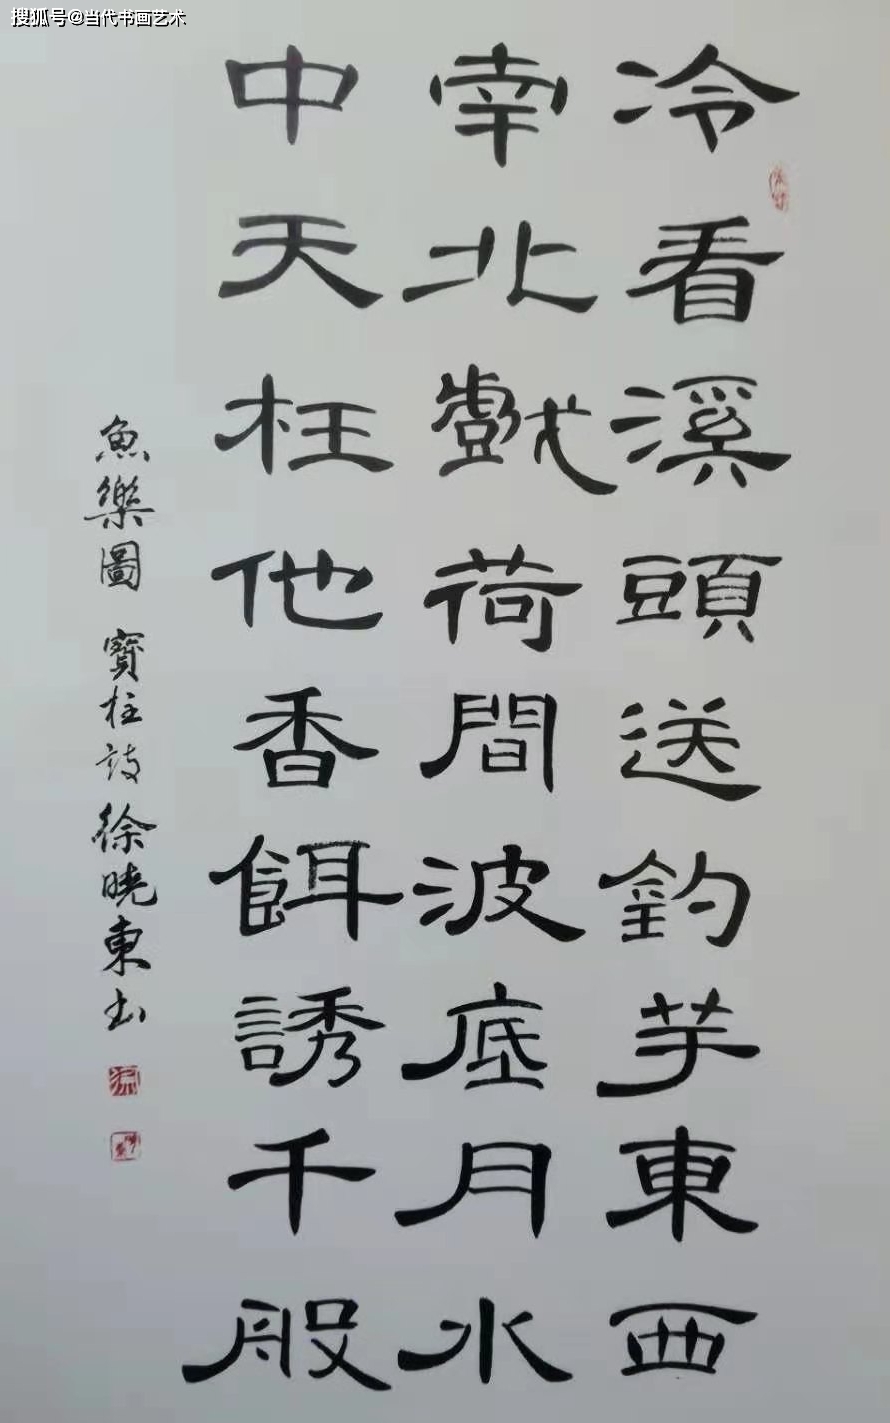 搜狐号@当代书画艺术
冷看溪頭送釣芋東西
南北戲荷間波底月水
中天枉他香餌誘千般
魚樂圖 寶柱詩 徐曉東书